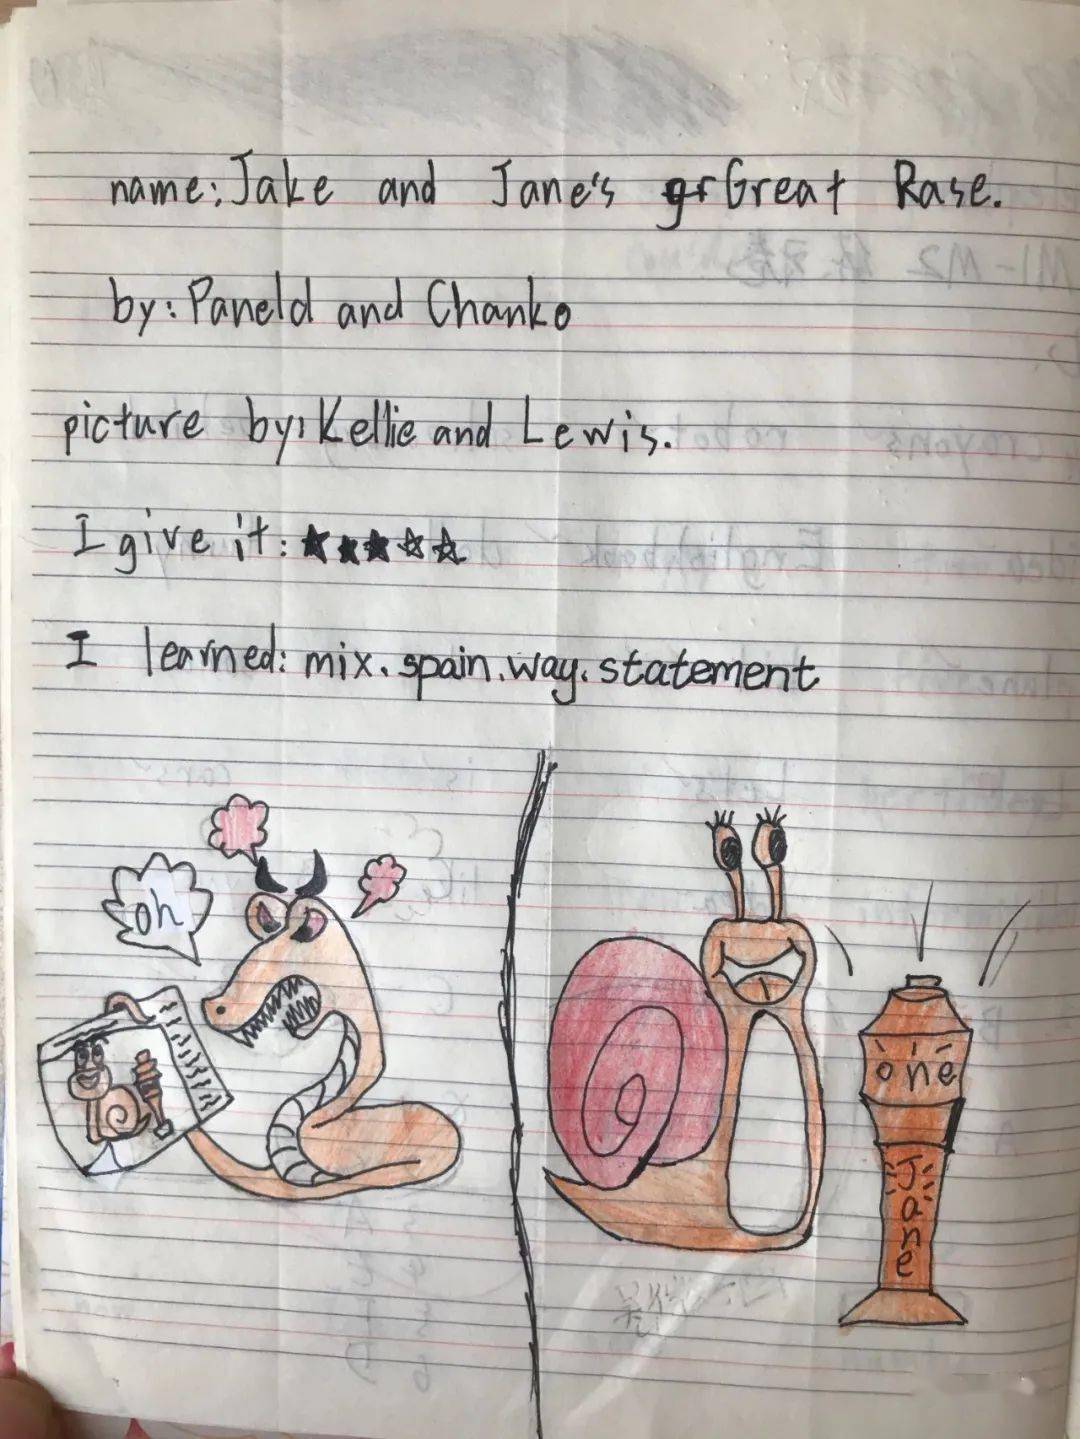 name: Jake and Jane's gr Great Rase.
by: Paneld and Chanko
picture by: Kellie and Lewis.
I give it: ★★★☆☆
I learned: mix. spain. way. statement
oh
one
Jane